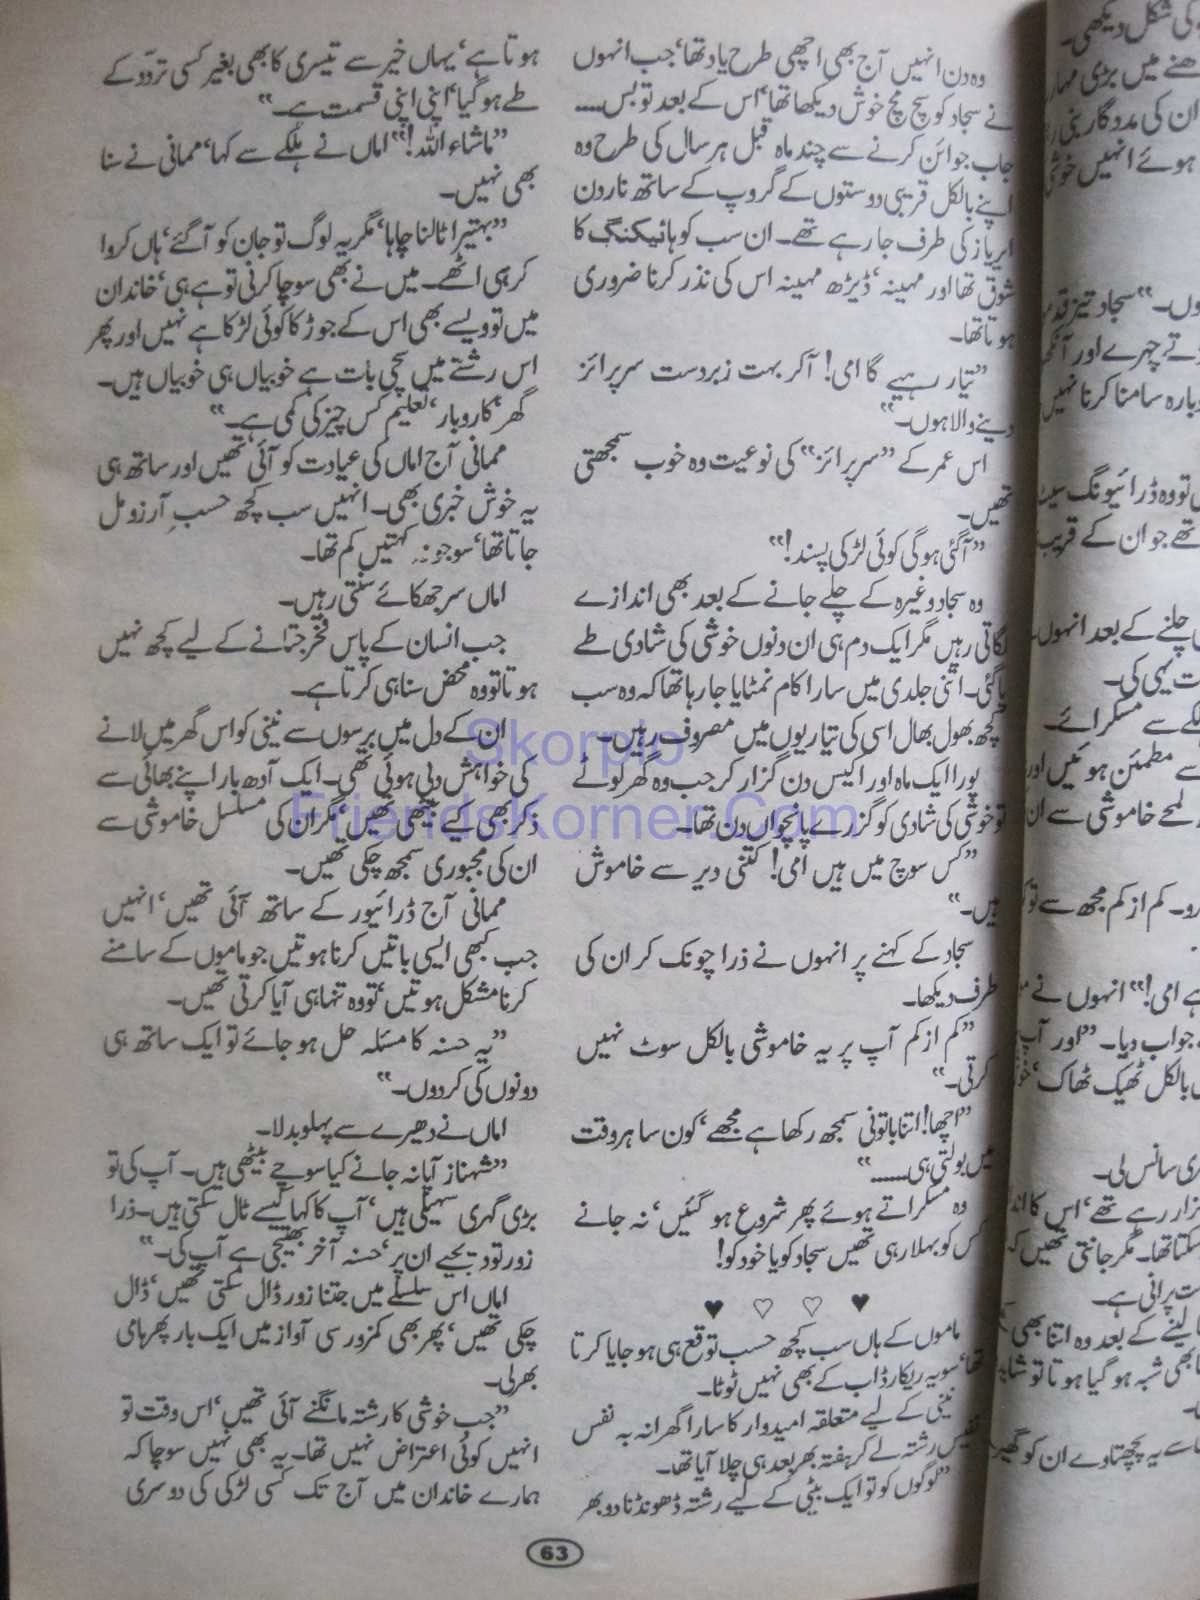 وہ دن انہیں آج بھی اچھی طرح یاد تھا، جب انہوں
نے سجاد کو سچ مچ خوش دیکھا تھا، اس کے بعد تو بس....
جاب جوائن کرنے سے چند ماہ قبل ہر سال کی طرح وہ
اپنے بالکل قریبی دوستوں کے گروپ کے ساتھ ناردن
ایریاز کی طرف جا رہے تھے۔ ان سب کو ہائیکنگ کا
شوق تھا اور مہینہ، ڈیڑھ مہینہ اس کی نذر کرنا ضروری
ہوتا تھا۔
”تیار رہیے گا امی! آکر بہت زبردست سرپرائز
دینے والا ہوں۔“
اس عمر کے ”سرپرائز“ کی نوعیت وہ خوب سمجھتی
تھیں۔
”آگئی ہوگی کوئی لڑکی پسند!“
وہ سجاد وغیرہ کے چلے جانے کے بعد بھی اندازے
لگاتی رہیں مگر ایک دم ہی ان دنوں خوشی کی شادی طے
پاگئی۔ اتنی جلدی میں سارا کام نمٹایا جا رہا تھا کہ وہ سب
کچھ بھول بھال اسی کی تیاریوں میں مصروف رہیں۔
پورا ایک ماہ اور اکیس دن گزار کر جب وہ گھر لوٹے
تو خوشی کی شادی کو گزرے پانچواں دن تھا۔
”کس سوچ میں ہیں امی! کتنی دیر سے خاموش
ہیں۔“
سجاد کے کہنے پر انہوں نے ذرا چونک کر ان کی
طرف دیکھا۔
”کم از کم آپ پر یہ خاموشی بالکل سوٹ نہیں
کرتی۔“
”اچھا! اتنا باتونی سمجھ رکھا ہے مجھے، کون سا ہر وقت
میں بولتی ہی......“
وہ مسکراتے ہوئے پھر شروع ہو گئیں، نہ جانے
کس کو بہلا رہی تھیں سجاد کو یا خود کو!
♥ ♡ ♡ ♥
ماموں کے ہاں سب کچھ حسب توقع ہی ہو جایا کرتا
تھا، سو یہ ریکارڈ اب کے بھی نہیں ٹوٹا۔
نینی کے لیے متعلقہ امیدوار کا سارا گھرانہ بہ نفس
نفیس رشتہ لے کر ہفتہ بھر بعد ہی چلا آیا تھا۔
”لوگوں کو تو ایک بیٹی کے لیے رشتہ ڈھونڈنا دوبھر
ہوتا ہے، یہاں خیر سے تیسری کا بھی بغیر کسی تردّد کے
طے ہوگیا، اپنی اپنی قسمت ہے۔“
”ماشاء اللہ!“ اماں نے ہلکے سے کہا، ممانی نے سنا
بھی نہیں۔
”بہتیرا ٹالنا چاہا، مگر یہ لوگ تو جان کو آگئے، ہاں کروا
کر ہی اٹھے۔ میں نے بھی سوچا کرنی تو ہے ہی، خاندان
میں تو ویسے بھی اس کے جوڑ کا کوئی لڑکا ہے نہیں اور پھر
اس رشتے میں سچی بات ہے خوبیاں ہی خوبیاں ہیں۔
گھر، کاروبار، تعلیم کس چیز کی کمی ہے۔“
ممانی آج اماں کی عیادت کو آئی تھیں اور ساتھ ہی
یہ خوش خبری بھی۔ انہیں سب کچھ حسبِ آرزو مل
جاتا تھا، سو جو نہ کہتیں کم تھا۔
اماں سر جھکائے سنتی رہیں۔
جب انسان کے پاس فخر جتانے کے لیے کچھ نہیں
ہوتا تو وہ محض سنا ہی کرتا ہے۔
ان کے دل میں برسوں سے نینی کو اس گھر میں لانے
کی خواہش دبی ہوئی تھی۔ ایک آدھ بار اپنے بھائی سے
ذکر بھی کیے بیٹھی تھیں، مگر ان کی مسلسل خاموشی سے
ان کی مجبوری سمجھ چکی تھیں۔
ممانی آج ڈرائیور کے ساتھ آئی تھیں، انہیں
جب کبھی ایسی باتیں کرنا ہوتیں جو ماموں کے سامنے
کرنا مشکل ہوتیں، تو وہ تنہا ہی آیا کرتی تھیں۔
”یہ حسنہ کا مسئلہ حل ہو جائے تو ایک ساتھ ہی
دونوں کی کردوں۔“
اماں نے دھیرے سے پہلو بدلا۔
”شہناز آپا نہ جانے کیا سوچے بیٹھی ہیں۔ آپ کی تو
بڑی گہری سہیلی ہیں، آپ کا کہا کیسے ٹال سکتی ہیں۔ ذرا
زور تو دیجیے ان پر، حسنہ آخر بھتیجی ہے آپ کی۔“
اماں اس سلسلے میں جتنا زور ڈال سکتی تھیں، ڈال
چکی تھیں، پھر بھی کمزور سی آواز میں ایک بار پھر ہامی
بھرلی۔
”جب خوشی کا رشتہ مانگنے آئی تھیں، اس وقت تو
انہیں کوئی اعتراض نہیں تھا۔ یہ بھی نہیں سوچا کہ
ہمارے خاندان میں آج تک کسی لڑکی کی دوسری
63
Skorpio
FriendsKorner.Com